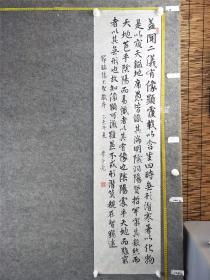 蓋聞二儀有像顯覆載以含生四時無形潛寒暑以化物
是以窺天鑑地庸愚皆識其端明陰洞陽賢哲罕窮其數然而
天地苞乎陰陽而易識者以其有像也陰陽處乎天地而難窮
者以其無形也故知像顯可徵雖愚不惑形潛莫覩在智猶迷
聖教序